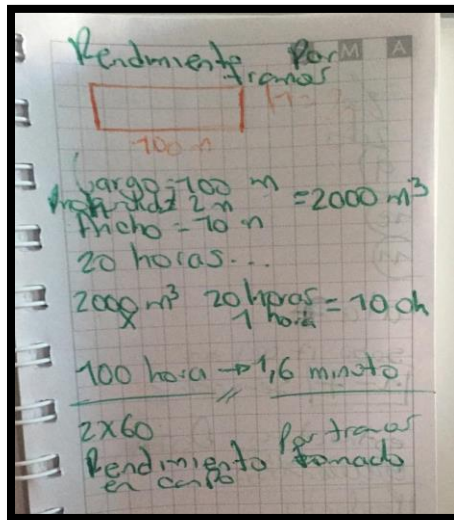 Rendimiento Por
tramos
M A
100 m
Largo = 100 m
Profundidad 2 m = 2000 m³
Ancho = 10 m
20 horas...
2000 m³ 20 horas = 100h
x 1 hora
100 hora → 1,6 minuto
2x60
Rendimiento Por tramos
en campo tomado